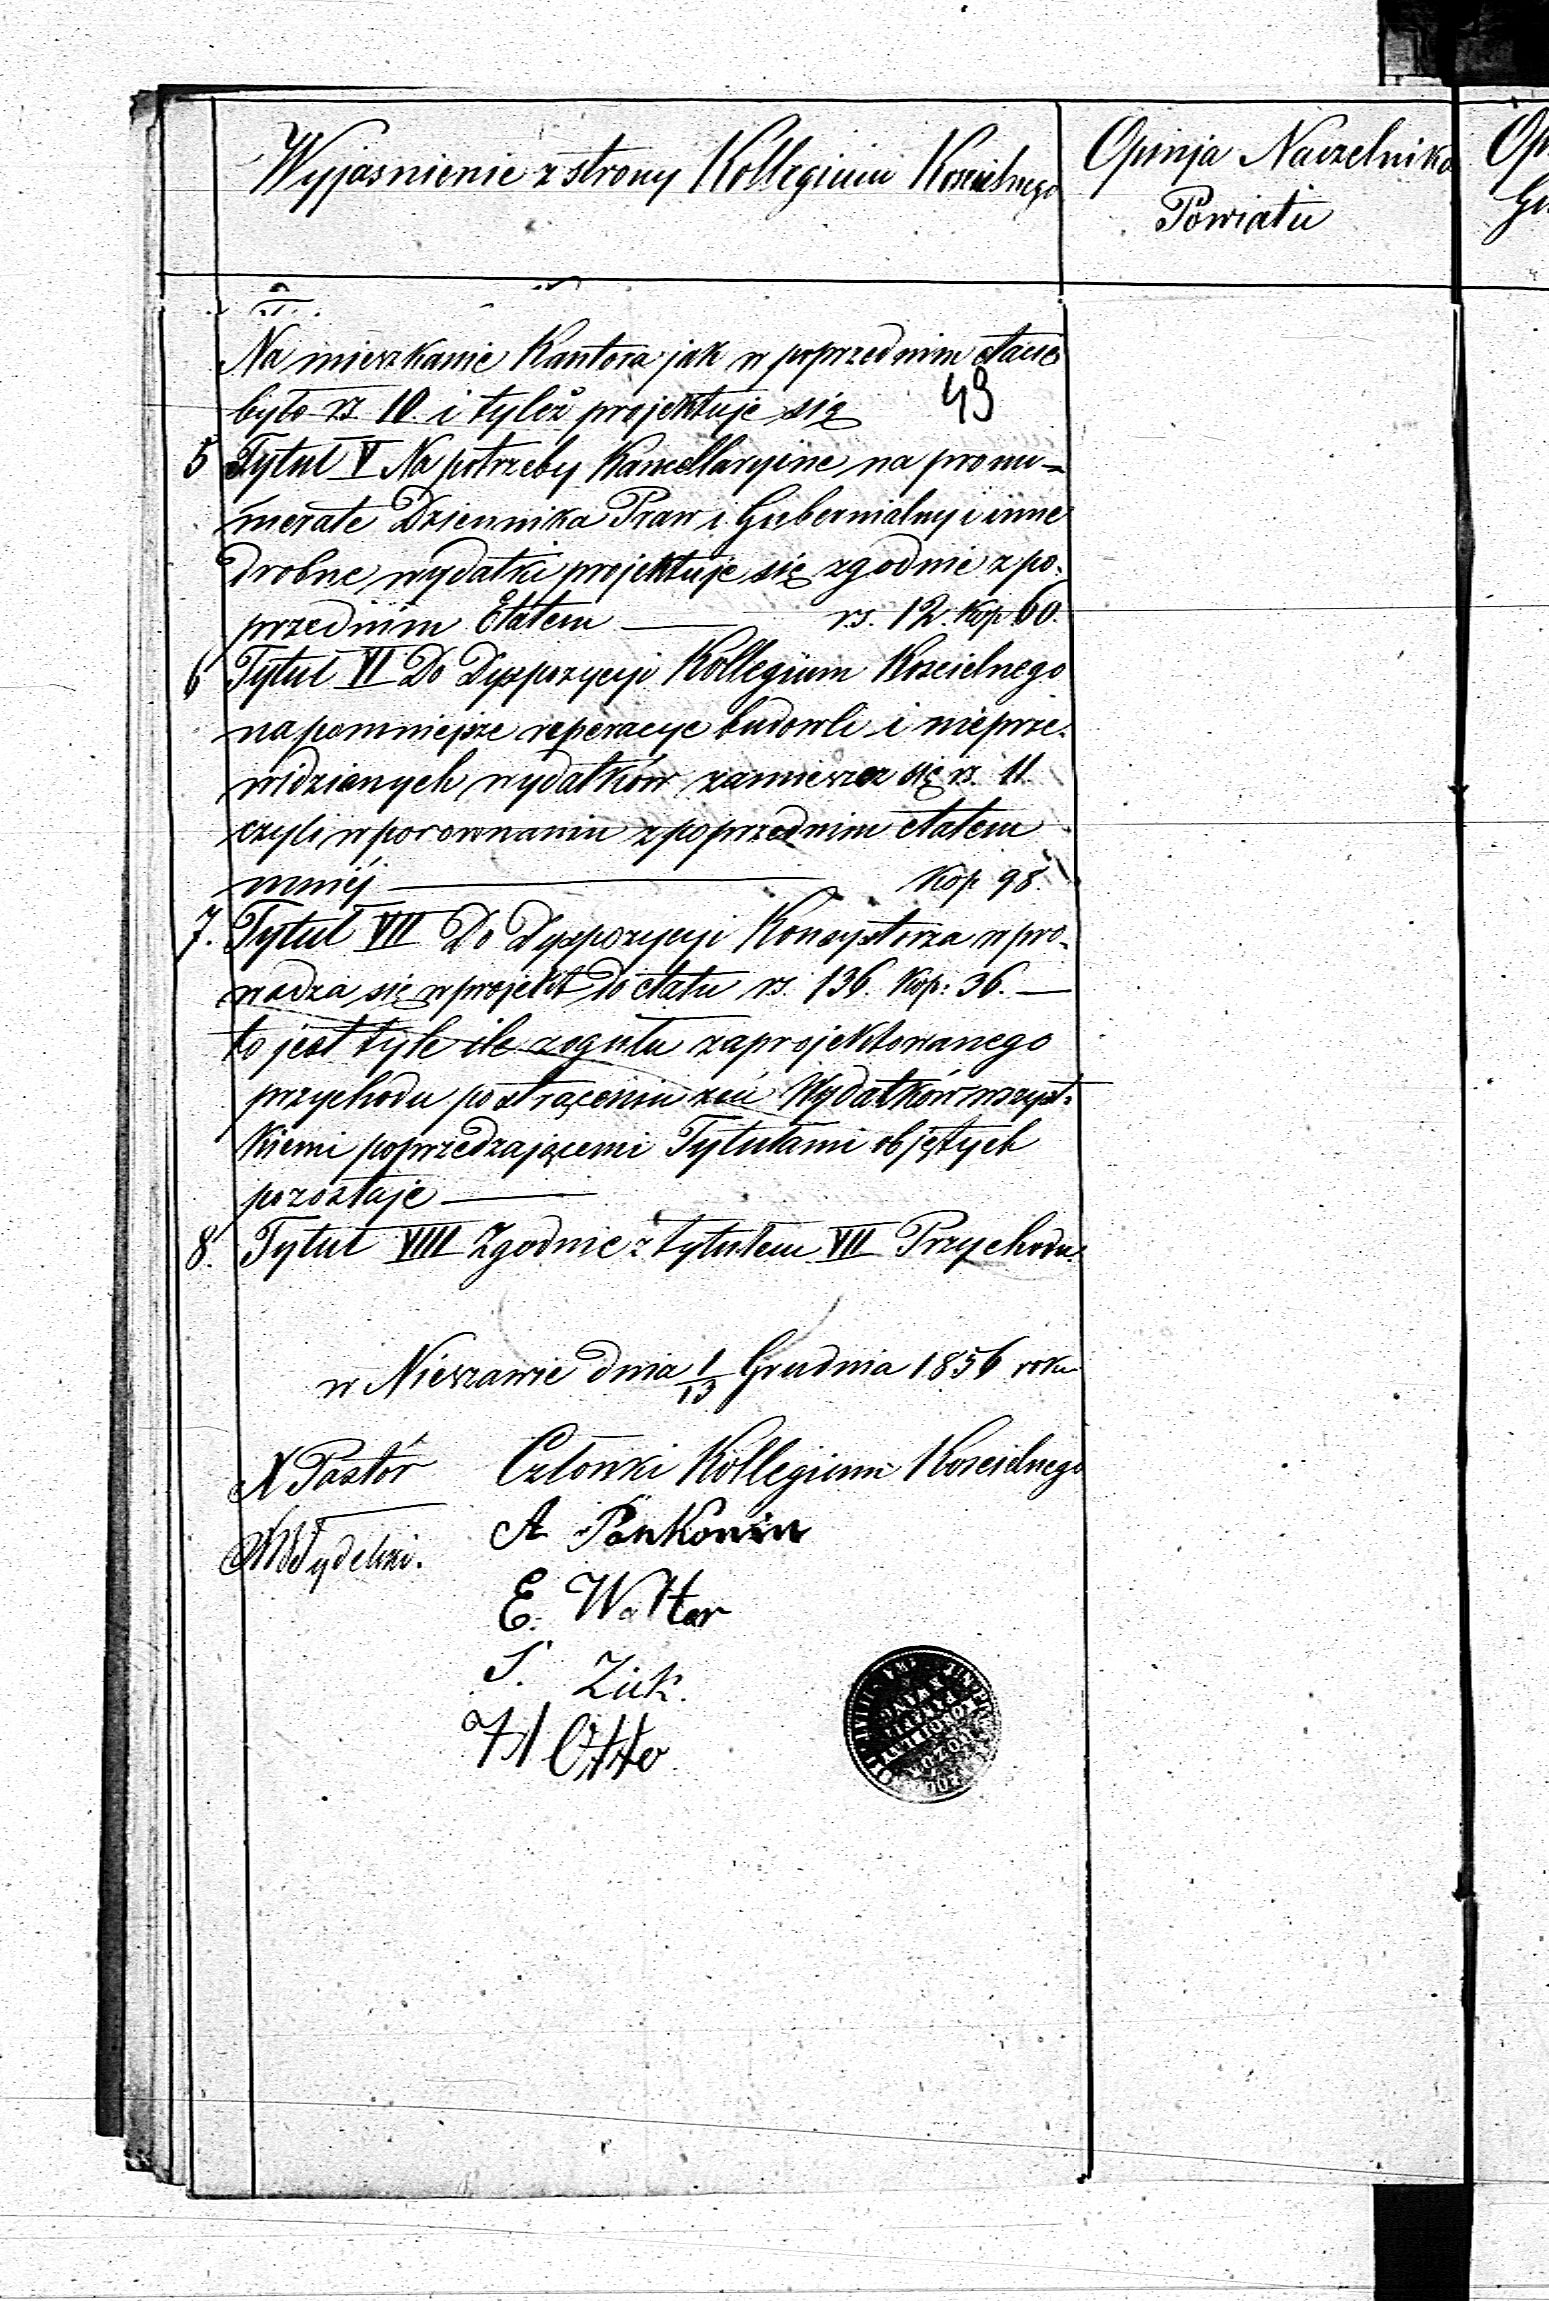 Wyjasnienie z strony Kollegium Koscielnego
Opinja Naczelnika
Powiatu
Na mieszkanie Kantora jak w poprzednim etacie
było rs. 10. i tyleż projektuje się
49
5 Tytuł V Na potrzeby Kancellaryine na pronu-
merate Dziennika Praw i Gubernialny i inne
drobne wydatki projektuje się zgodnie z po-
przednim Etatem — rs. 12. Kop 60.
6 Tytuł VI Do Dyspozycyi Kollegium Koscielnego
na pomniejsze reperacye budowli i nieprze-
widzianych wydatków zamieszcz się rs. 11.
czyli w porownaniu z poprzednim etatem
mniéj — Kop 98.
7. Tytuł VII Do Dyspozycyi Konsystorza wpro-
wadza się w projekt do etatu rs. 136. Kop: 36. —
to jest tyle ile z ogułu zaprojektowanego
przychodu po strąceniu zeń Wydatków wszyst-
kiemi poprzedzającemi Tytułami objętych
pozostaje —
8. Tytuł VIII Zgodnie z tytułem VII Przychodu.
w Nieszawie dnia 1/13 Grudnia 1856 roku
X Pastór
Członki Kollegium Koscielnego
A Pankonin
E. Walter
S. Zick.
H Otto